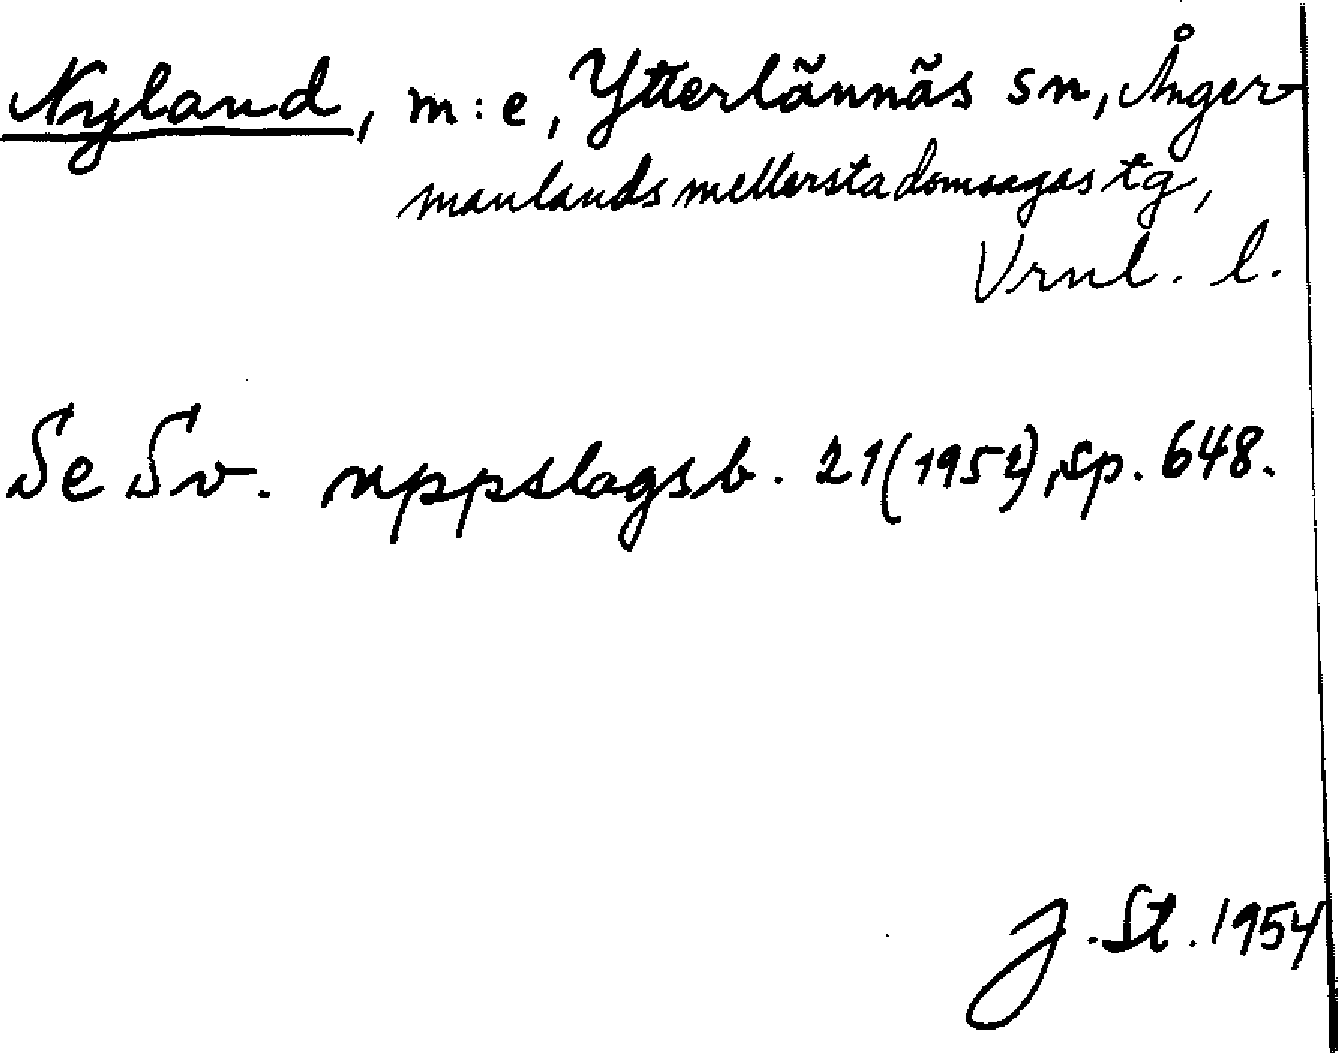 Nyland, m:e, Ytterlännäs sn, Ånger-
manlands mellersta domsagas tg,
Vrnl. l.
Se Sv. uppslagsb. 21(1952), sp. 648.
J. St. 1954